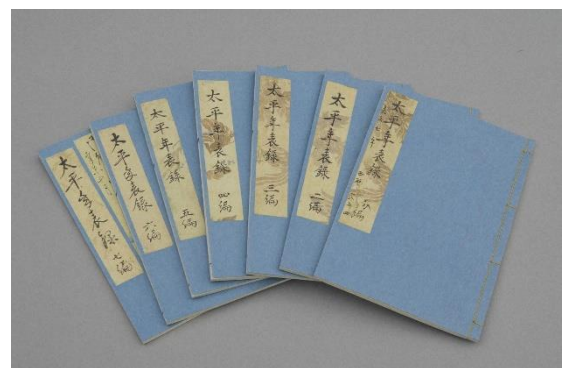 太平年表録
太平年表録 二編
太平年表録 三編
太平年表録 四編
太平年表録 五編
太平年表録 六編
太平年表録 七編